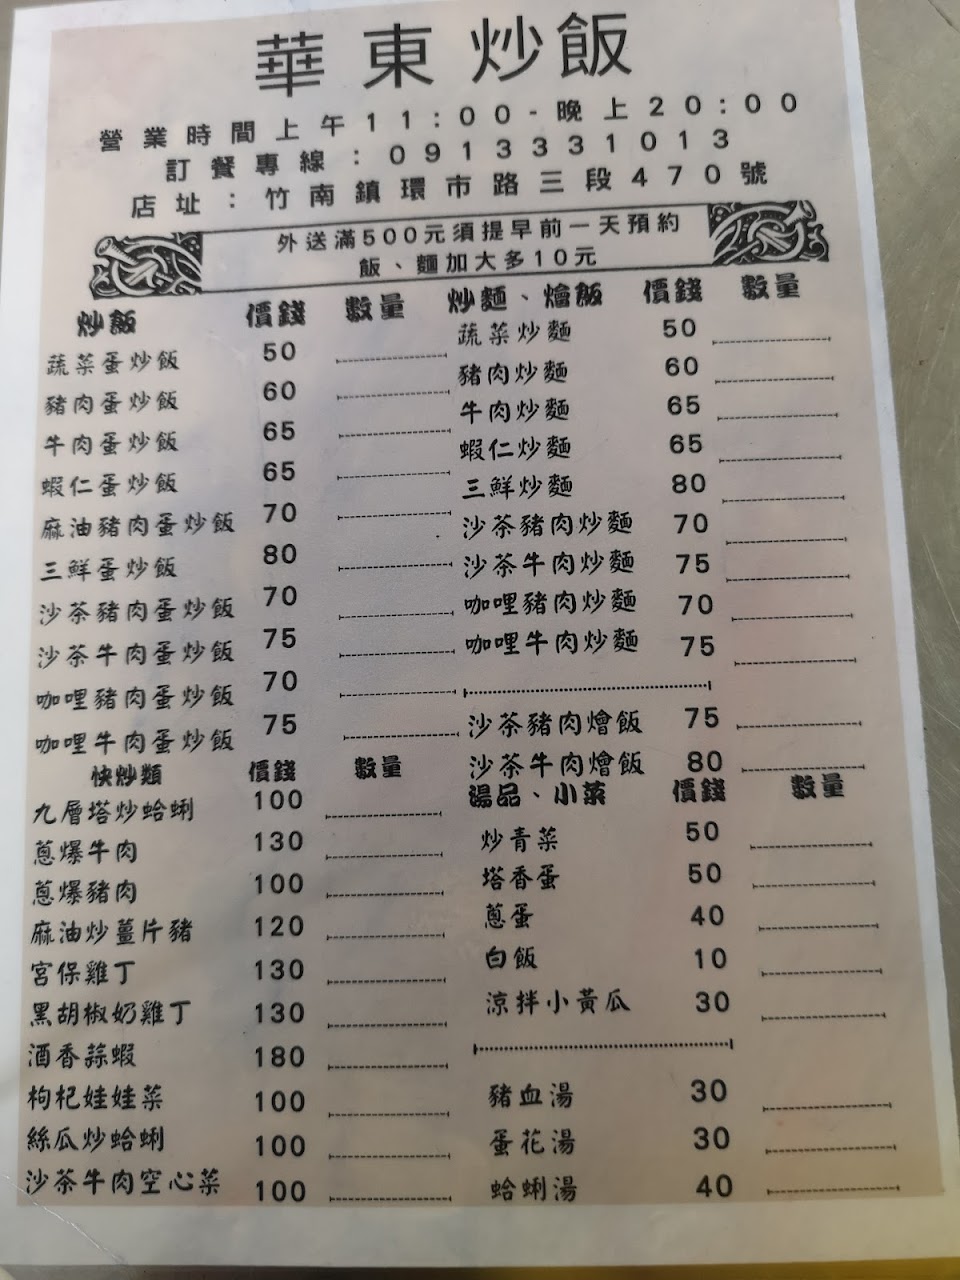 華東炒飯
營業時間上午11:00-晚上20:00
訂餐專線：0913331013
店址：竹南鎮環市路三段470號
外送滿500元須提早前一天預約
飯、麵加大多10元
炒飯 價錢 數量
蔬菜蛋炒飯 50
豬肉蛋炒飯 60
牛肉蛋炒飯 65
蝦仁蛋炒飯 65
麻油豬肉蛋炒飯 70
三鮮蛋炒飯 80
沙茶豬肉蛋炒飯 70
沙茶牛肉蛋炒飯 75
咖哩豬肉蛋炒飯 70
咖哩牛肉蛋炒飯 75
快炒類 價錢 數量
九層塔炒蛤蜊 100
蔥爆牛肉 130
蔥爆豬肉 100
麻油炒薑片豬 120
宮保雞丁 130
黑胡椒奶雞丁 130
酒香蒜蝦 180
枸杞娃娃菜 100
絲瓜炒蛤蜊 100
沙茶牛肉空心菜 100
炒麵、燴飯 價錢 數量
蔬菜炒麵 50
豬肉炒麵 60
牛肉炒麵 65
蝦仁炒麵 65
三鮮炒麵 80
沙茶豬肉炒麵 70
沙茶牛肉炒麵 75
咖哩豬肉炒麵 70
咖哩牛肉炒麵 75
沙茶豬肉燴飯 75
沙茶牛肉燴飯 80
湯品、小菜 價錢 數量
炒青菜 50
塔香蛋 50
蔥蛋 40
白飯 10
涼拌小黃瓜 30
豬血湯 30
蛋花湯 30
蛤蜊湯 40